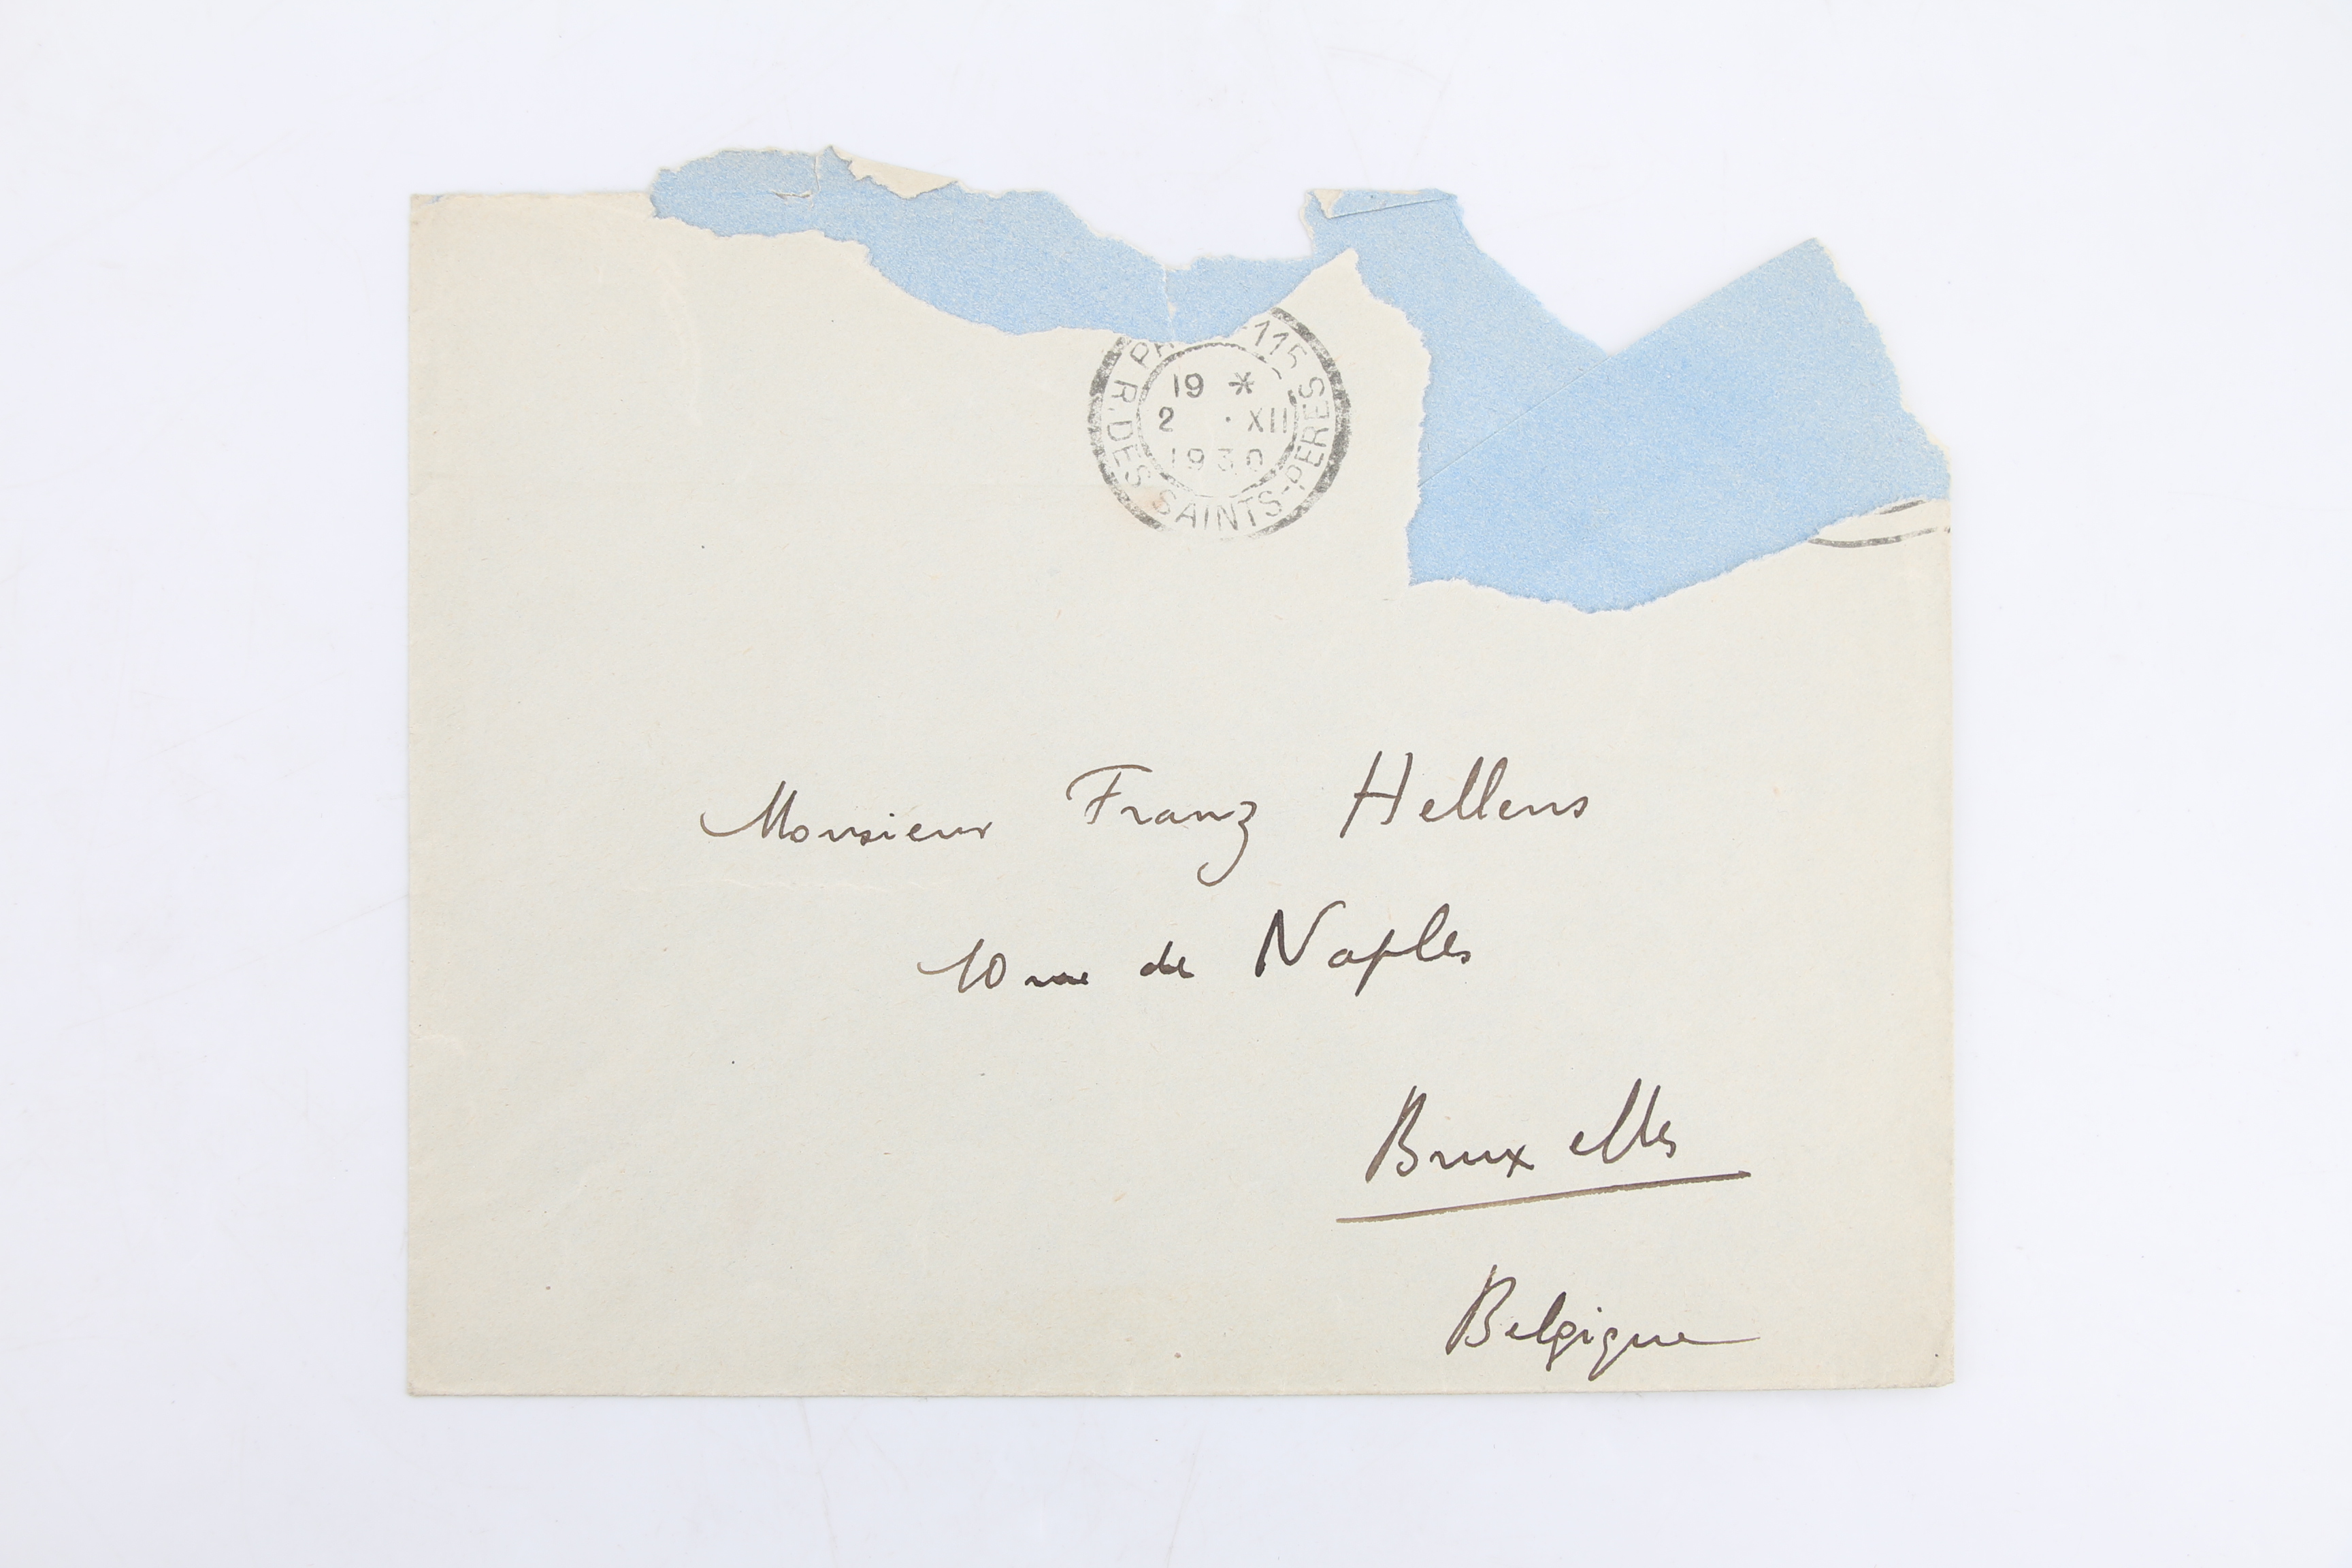 115
19 *
2 · XII
1930
R. DES SAINTS-PERES
Monsieur Franz Hellens
10 rue de Naples
Bruxelles
Belgique